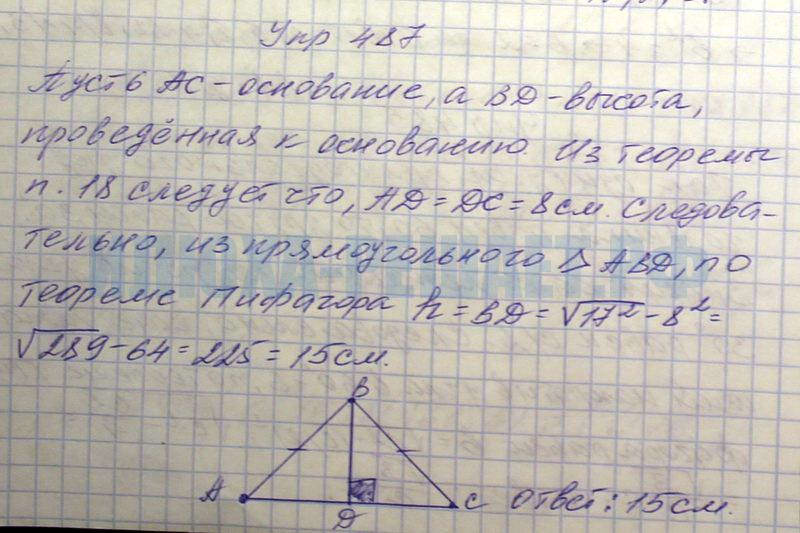 Упр 487
Пусть AC - основание, а BD - высота,
проведённая к основанию. Из теоремы
п. 18 следует что, AD = DC = 8 см. Следова-
тельно, из прямоугольного △ ABD, по
теореме Пифагора h = BD = √17² - 8² =
√289 - 64 = 225 = 15 см.
B
A
D
C
Ответ: 15 см.